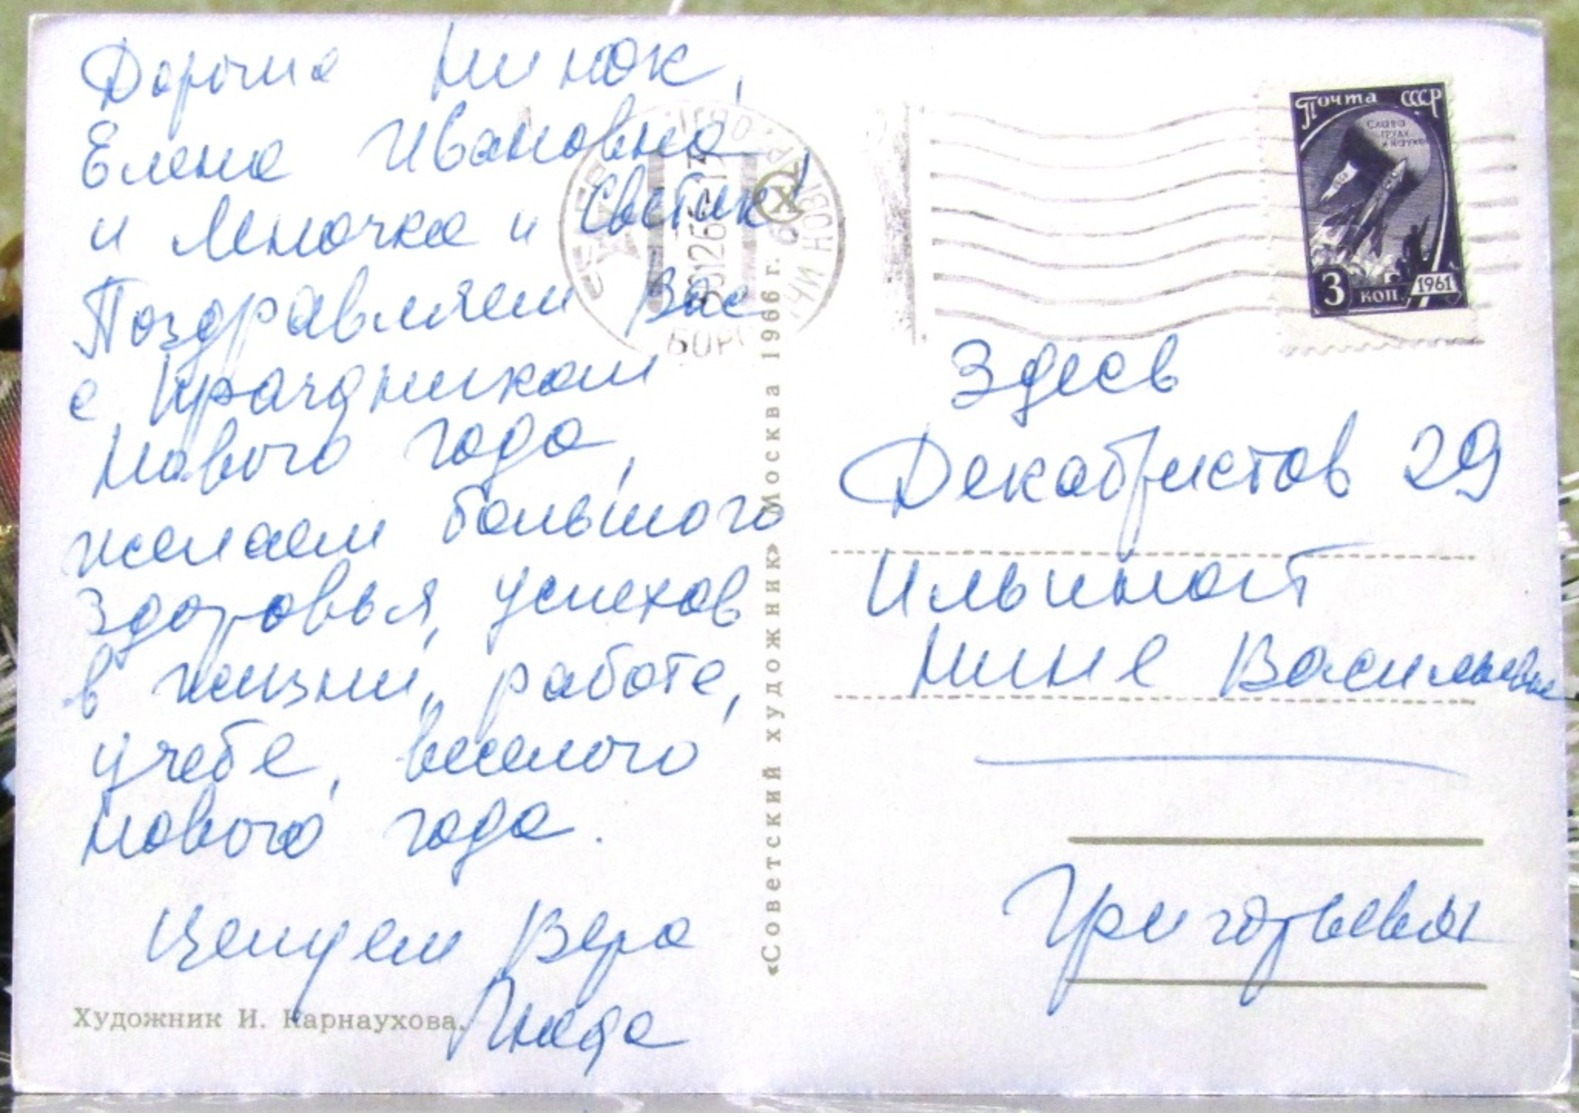 Дорогие Нинок,
Елена Ивановна
и Леночка и Светик!
Поздравляем Вас
с праздником
Нового года,
желаем большого
здоровья, успехов
в жизни, работе,
учебе, веселого
Нового года.
Целуем Вера
Художник И. Карнаухова.
«Советский художник» Москва 1966 г.
Почта СССР
Слава
труду
и науке
3 коп 1961
Здесь
Декабристов 29
Ильиной
Нине Васильевне
Григорьевы